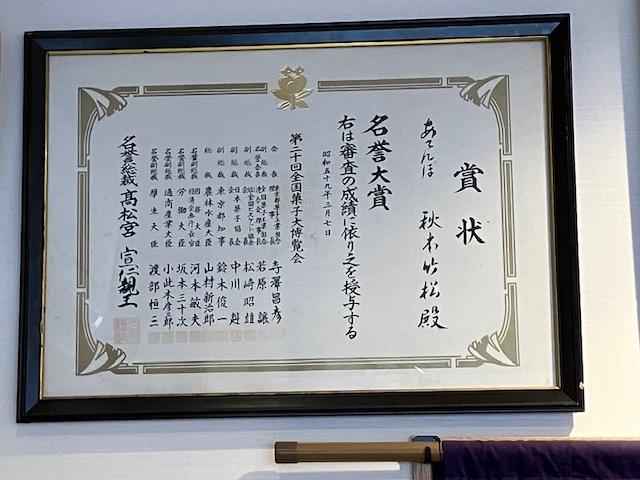 賞状
あてんぼ 秋本竹松殿
名誉大賞
右は審査の成績に依り之を授与する
昭和五十九年三月七日
第二十回全国菓子大博覧会
会長 寺澤昌彦
副総裁 若原譲
松崎昭雄
副総裁 中川赳
副総裁 東京都知事 鈴木俊一
総裁 農林水産大臣 山村新治郎
名誉副総裁 経済企画庁長官 河本敏夫
名誉副総裁 労働大臣 坂本三十次
名誉副総裁 通商産業大臣 小此木彦三郎
名誉副総裁 厚生大臣 渡部恒三
名誉総裁 高松宮宣仁親王